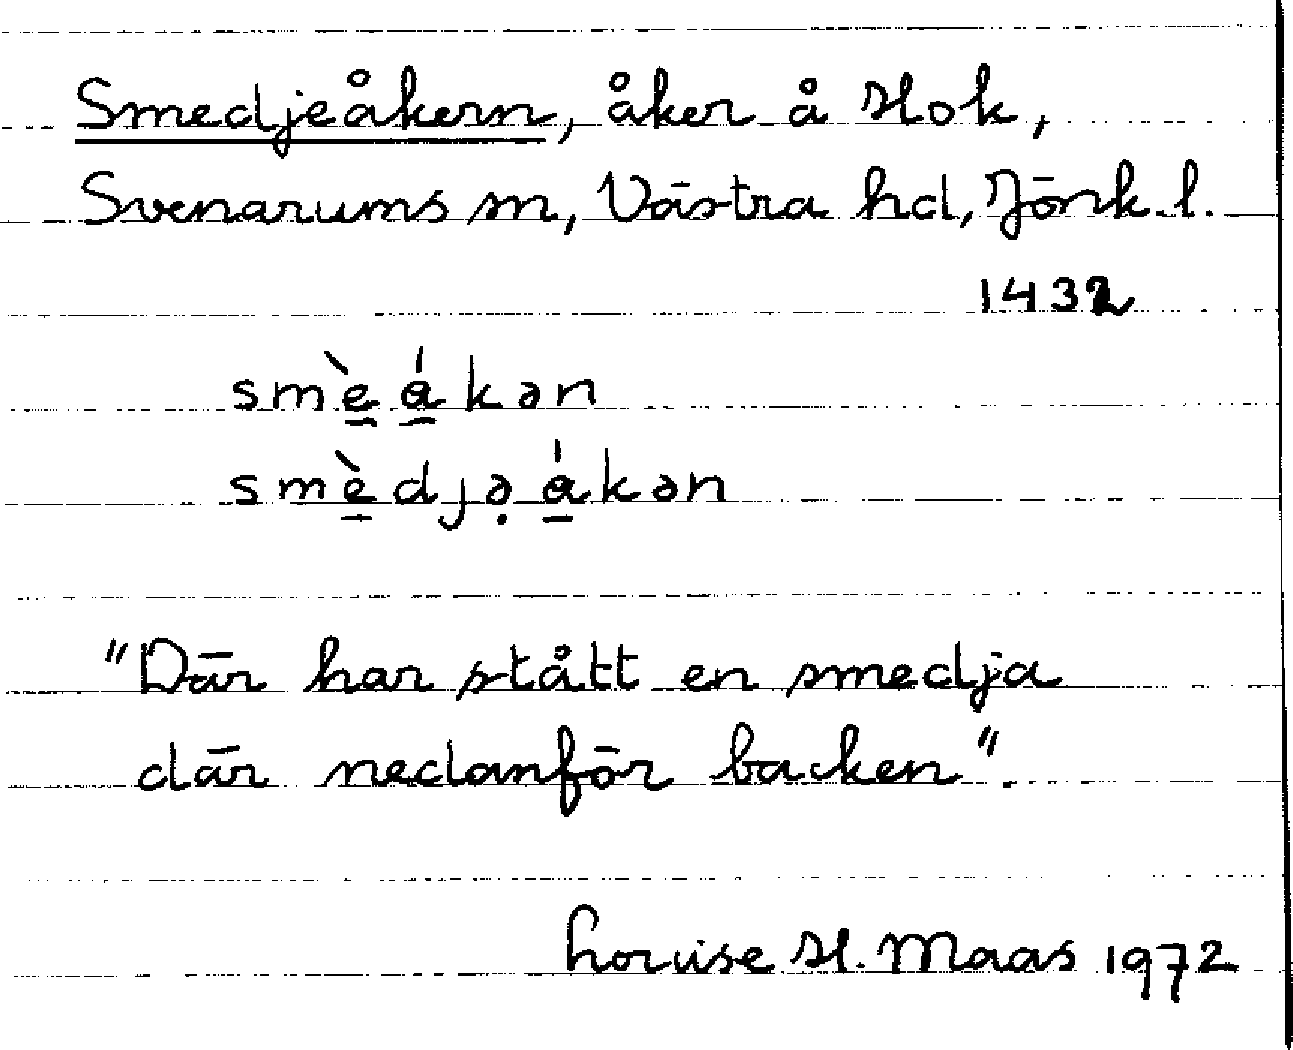 Smedjeåkern, åker å Hok,
Svenarums sn, Västra hd, Jönk. l.
1432
smèákən
smèdjə̣ákən
"Där har stått en smedja
där nedanför backen".
Louise H. Maas 1972